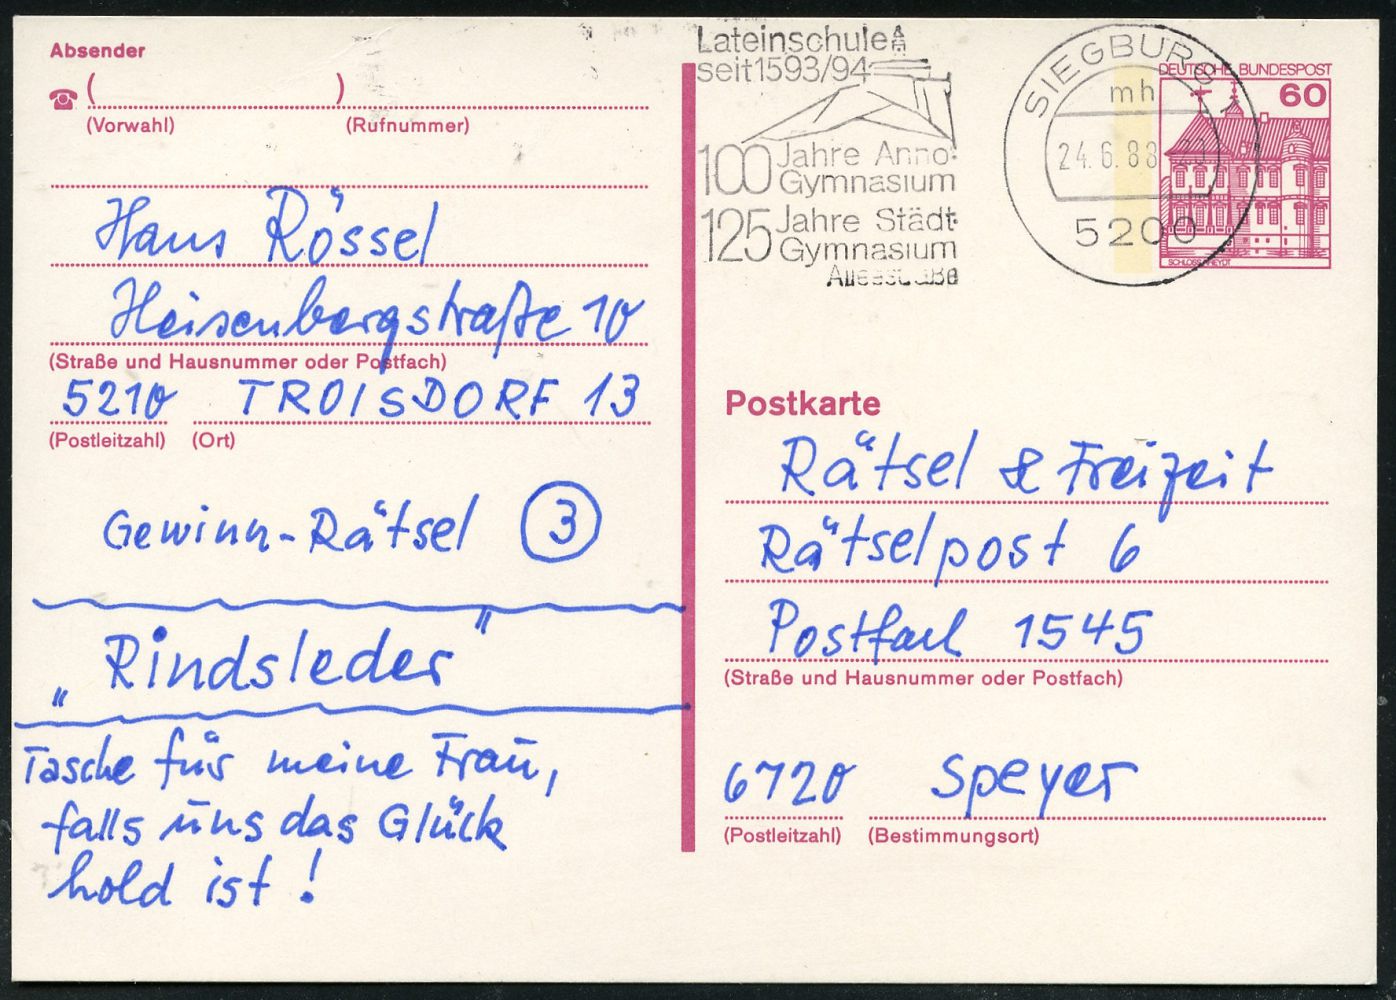 Absender
( )
(Vorwahl) (Rufnummer)
Hans Rössel
Heisenbergstraße 10
(Straße und Hausnummer oder Postfach)
5210 TROISDORF 13
(Postleitzahl) (Ort)
Gewinn-Rätsel 3
„Rindsleder"
Tasche für meine Frau,
falls uns das Glück
hold ist!
Lateinschule
seit 1593/94
100 Jahre Anno-
Gymnasium
125 Jahre Städt.
Gymnasium
Alleestraße
SIEGBURG 1
mh
24.6.88-20
5200
DEUTSCHE BUNDESPOST
60
SCHLOSS RHEYDT
Postkarte
Rätsel & Freizeit
Rätselpost 6
Postfach 1545
(Straße und Hausnummer oder Postfach)
6720 Speyer
(Postleitzahl) (Bestimmungsort)